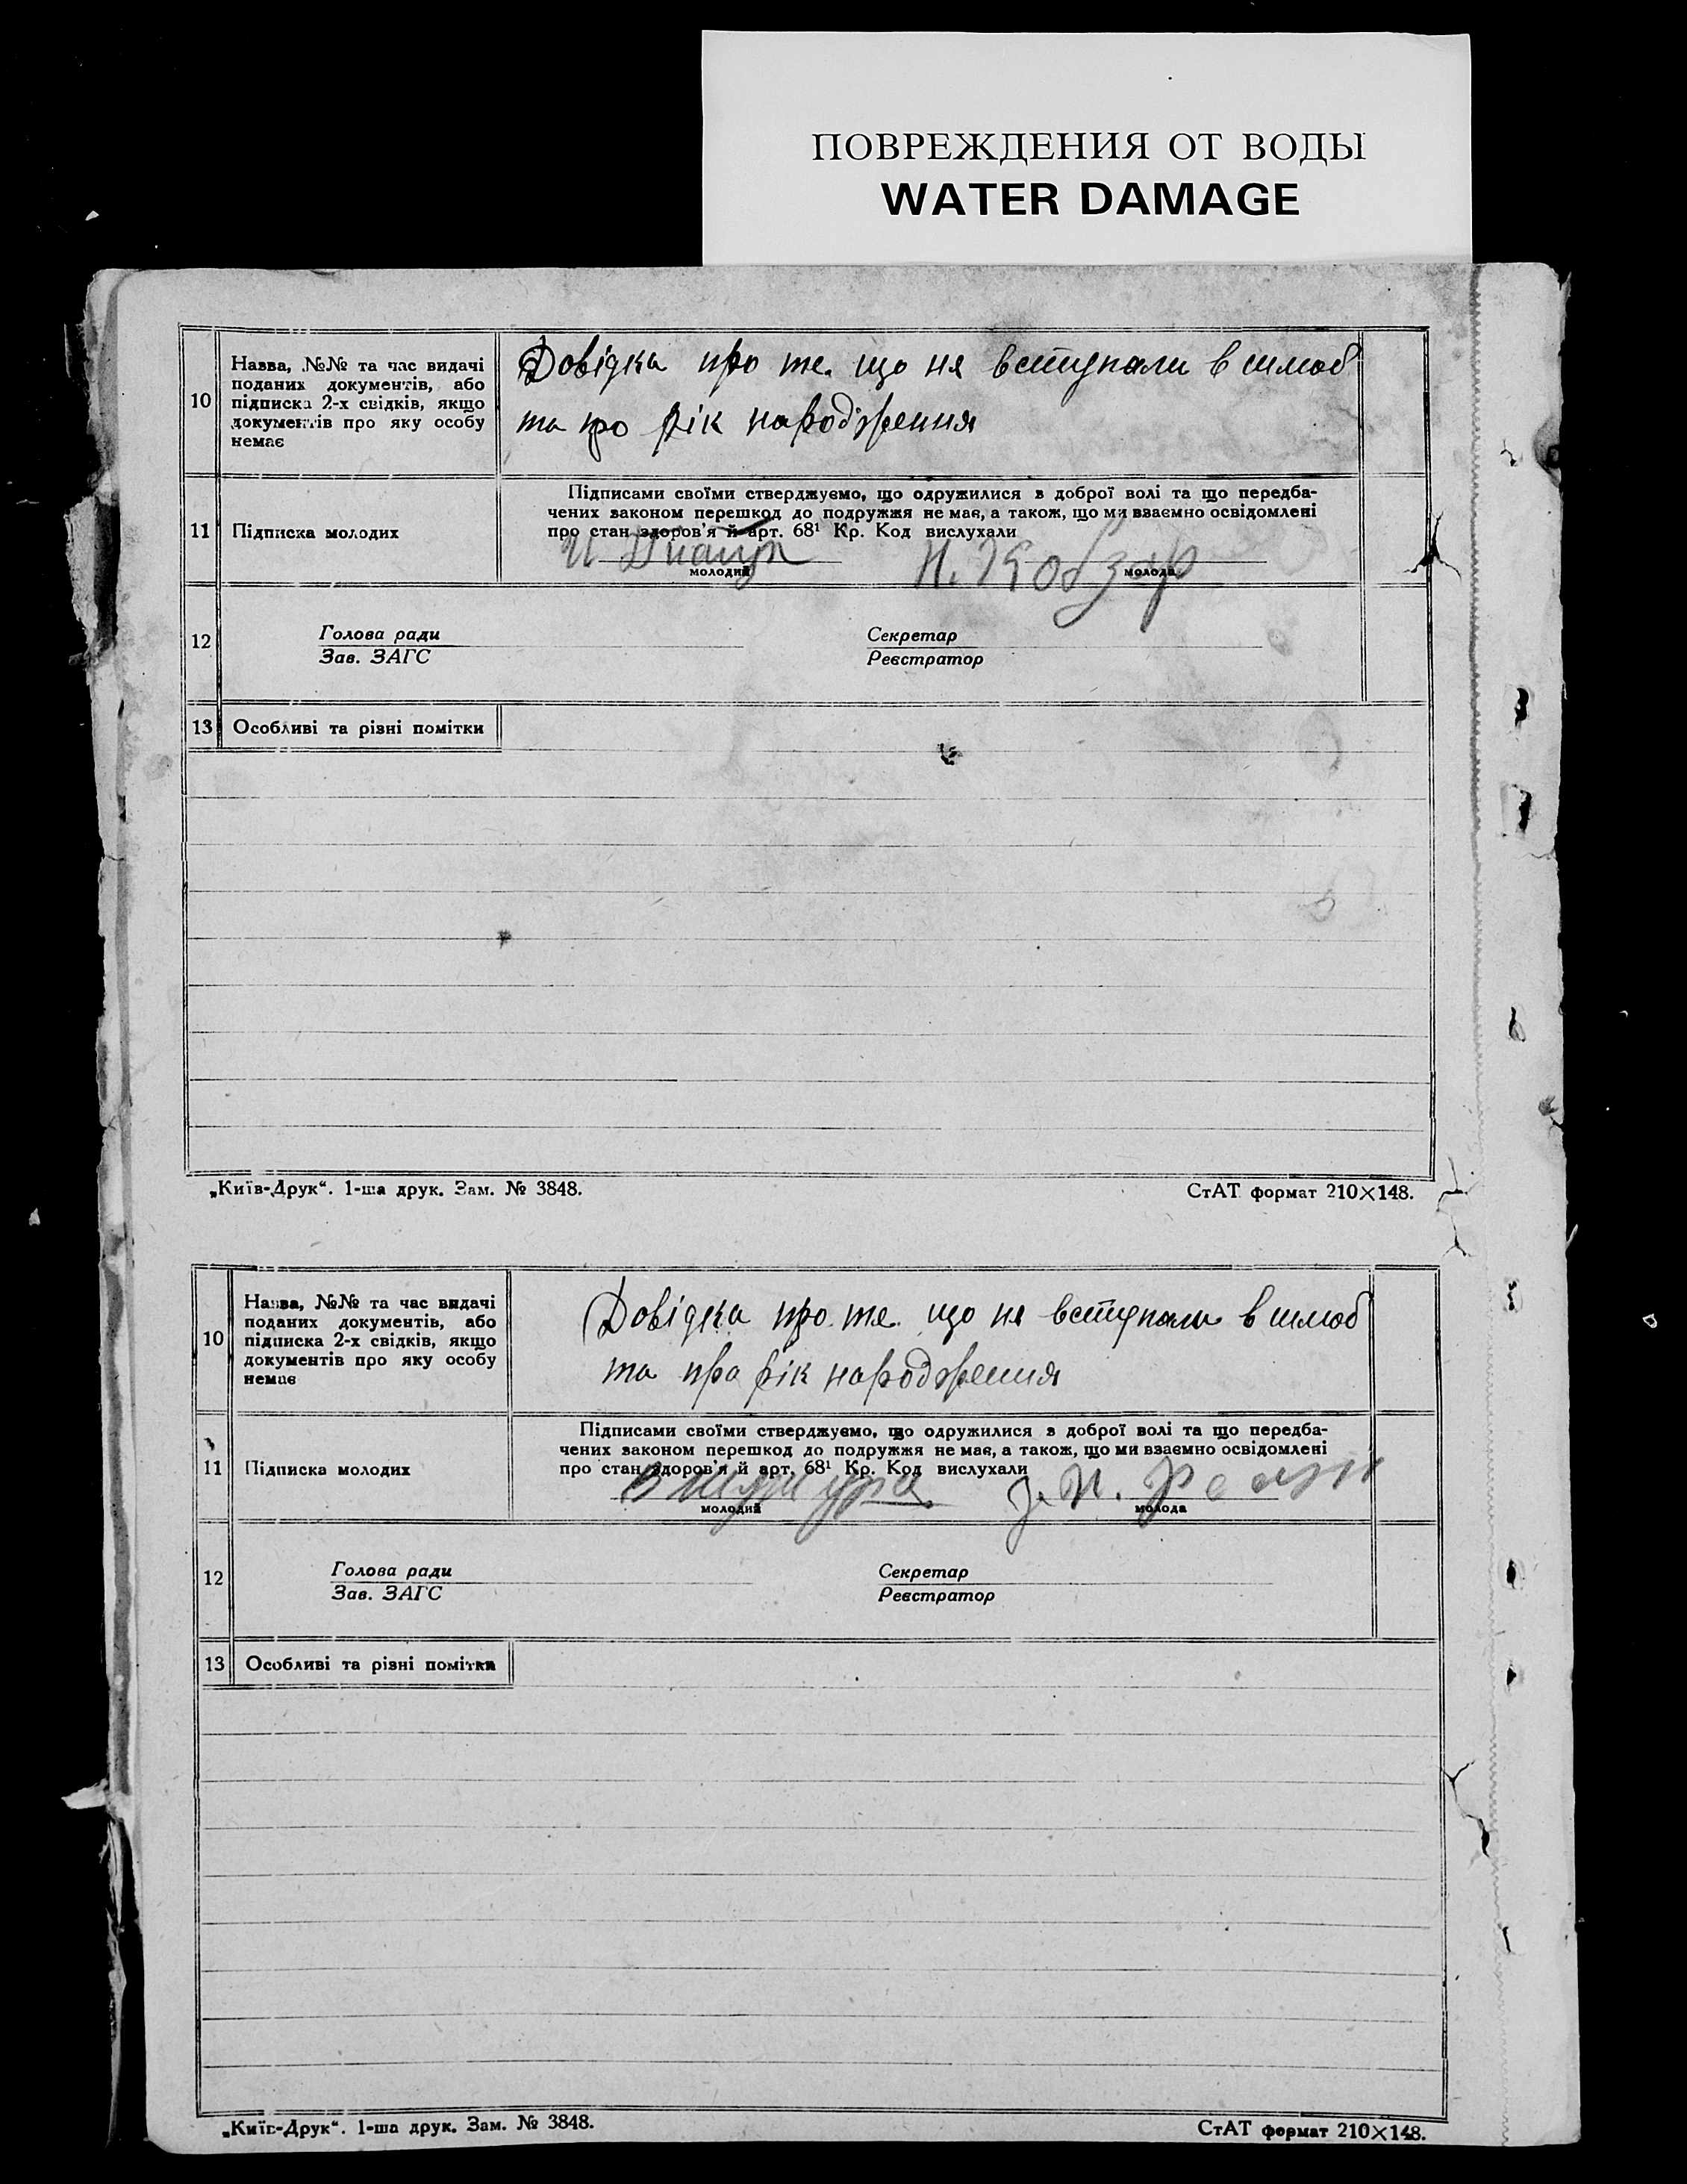 ПОВРЕЖДЕНИЯ ОТ ВОДЫ
WATER DAMAGE
10
Назва, №№ та час видачі
поданих документів, або
підписка 2-х свідків, якщо
документів про яку особу
немає
Довідка про те що не вступали в шлюб
та про рік народження
11
Підписка молодих
Підписами своїми стверджуємо, що одружилися з доброї волі та що передба-
чених законом перешкод до подружжя не має, а також, що ми взаємно освідомлені
про стан здоров'я й арт. 68¹ Кр. Код вислухали
Н. Кобзар
молодий
молода
12
Голова ради
Зав. ЗАГС
Секретар
Реєстратор
13
Особливі та різні помітки
„Київ-Друк“. 1-ша друк. Зам. № 3848.
СтАТ формат 210×148.
10
Назва, №№ та час видачі
поданих документів, або
підписка 2-х свідків, якщо
документів про яку особу
немає
Довідка про те що не вступали в шлюб
та про рік народження
11
Підписка молодих
Підписами своїми стверджуємо, що одружилися з доброї волі та що передба-
чених законом перешкод до подружжя не має, а також, що ми взаємно освідомлені
про стан здоров'я й арт. 68¹ Кр. Код вислухали
молодий
молода
12
Голова ради
Зав. ЗАГС
Секретар
Реєстратор
13
Особливі та різні помітки
„Київ-Друк“. 1-ша друк. Зам. № 3848.
СтАТ формат 210×148.